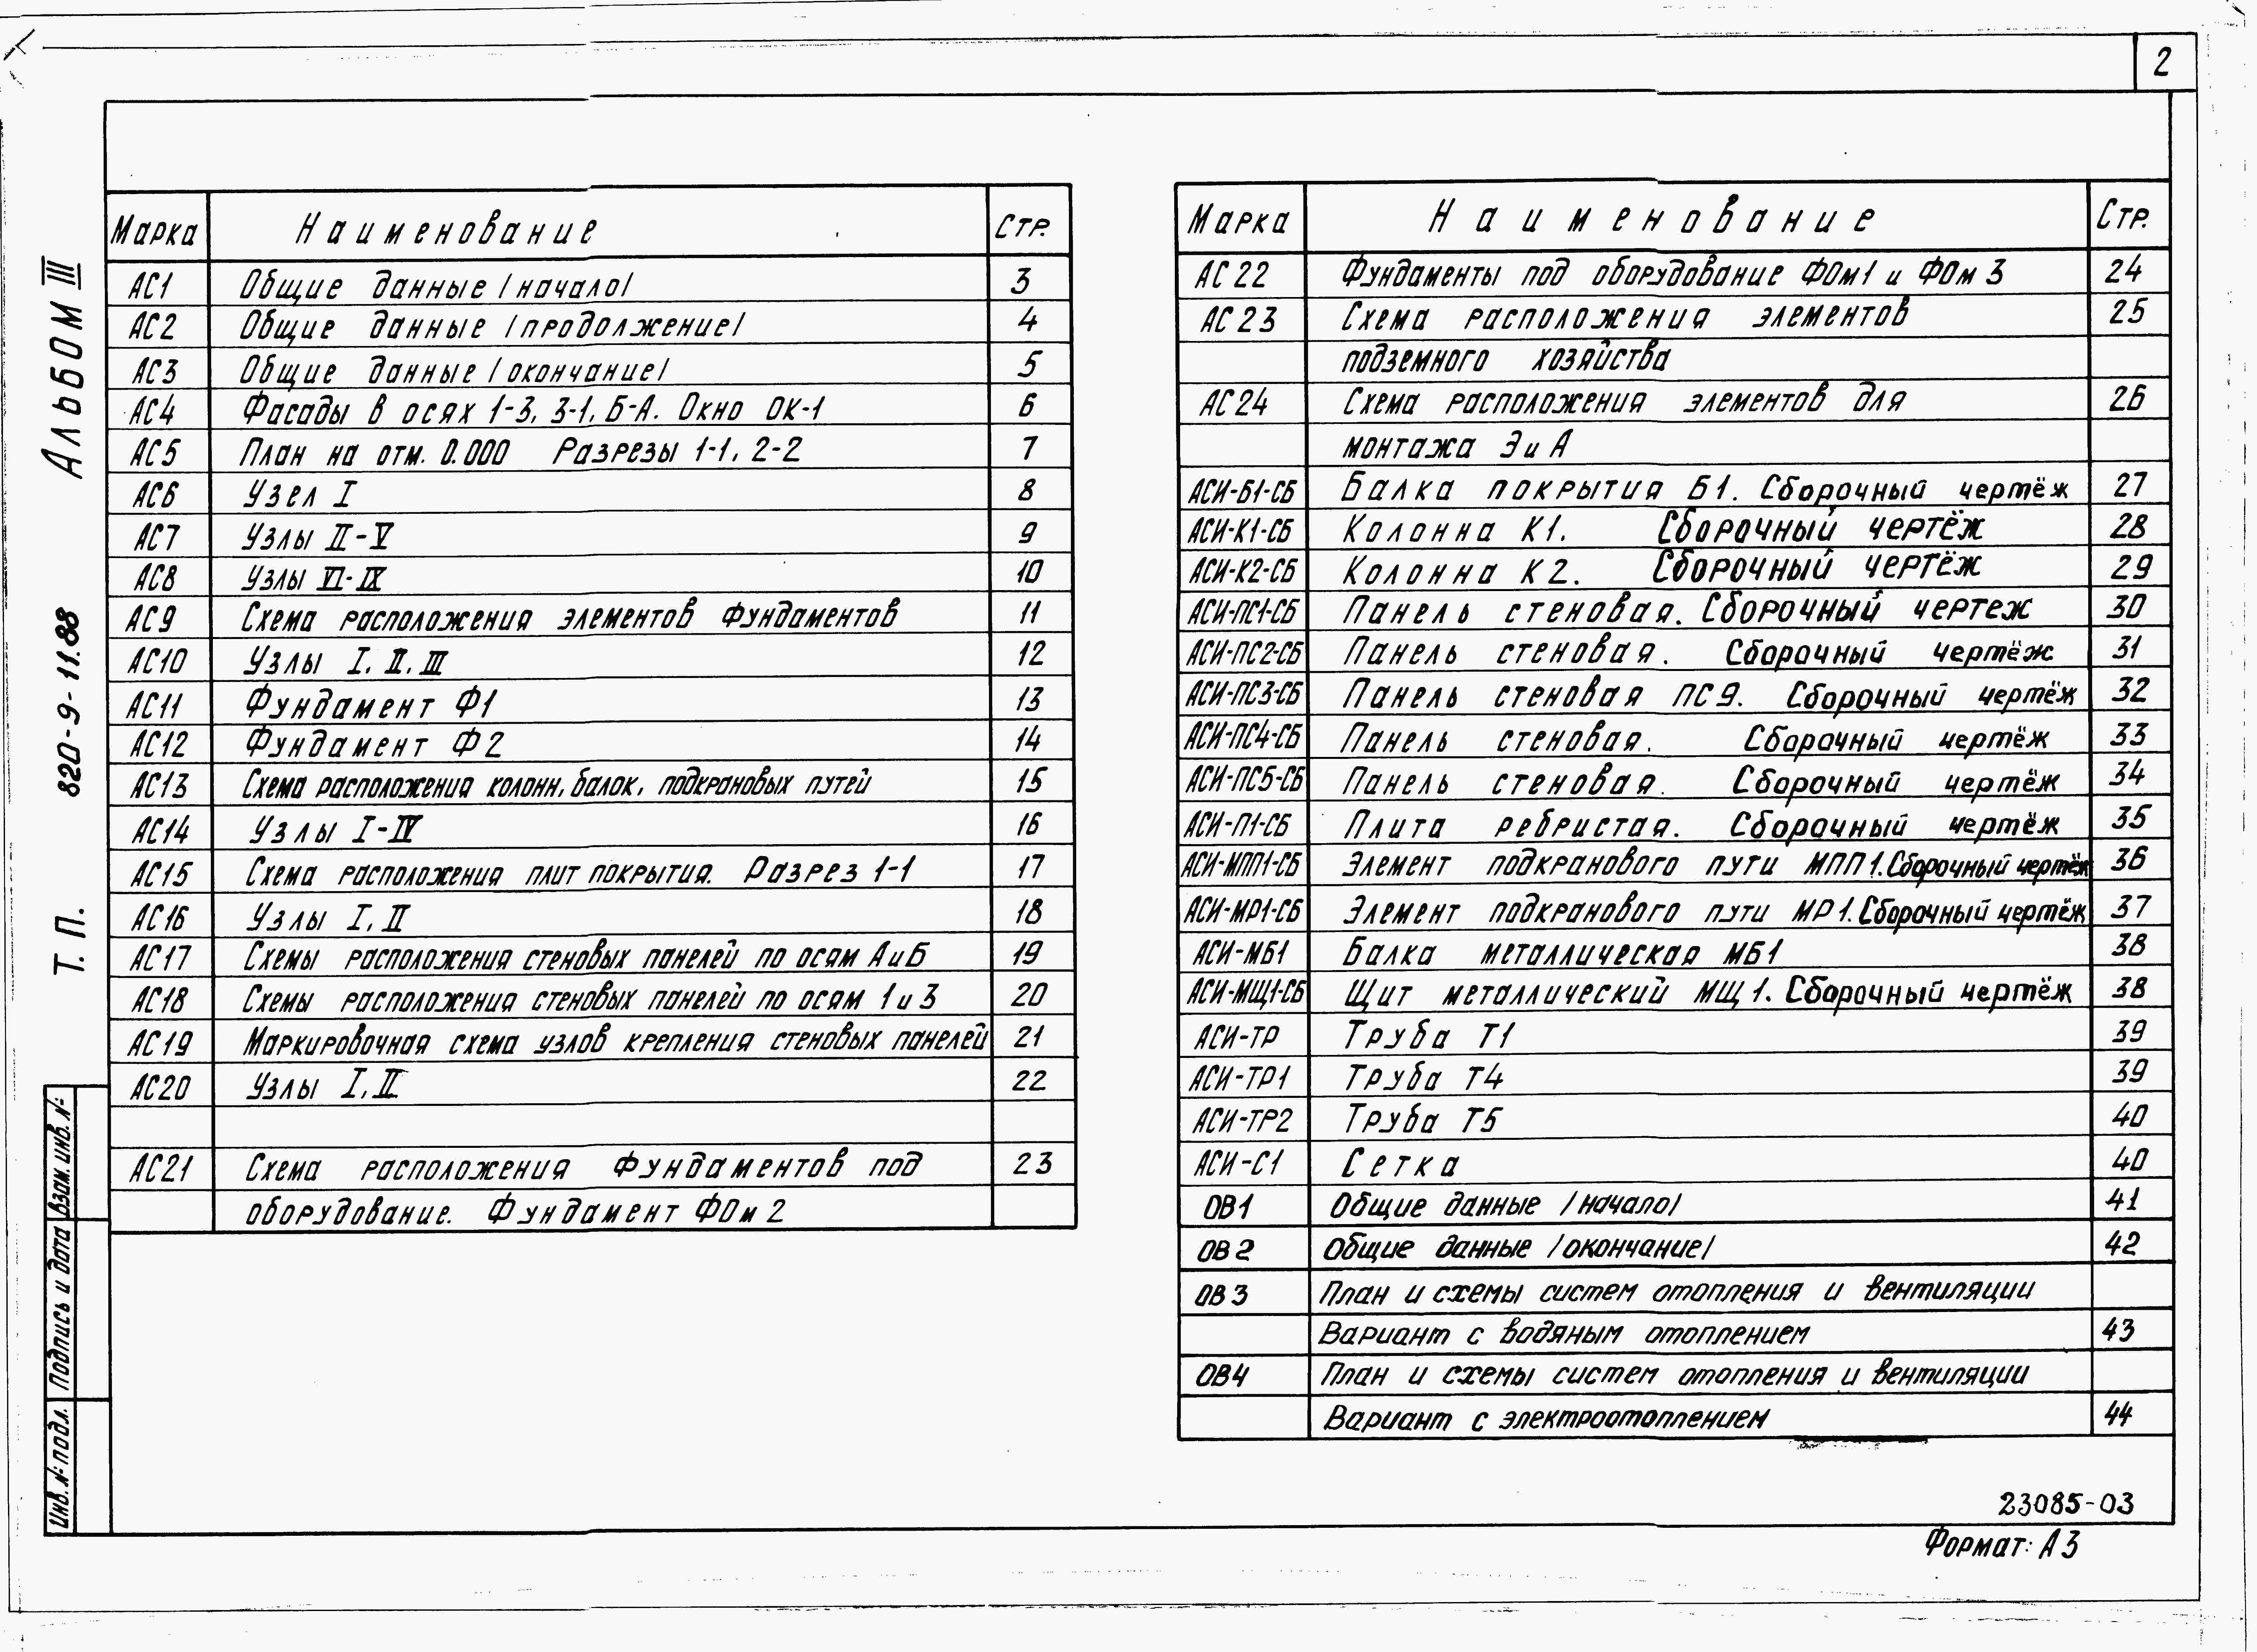 2
Альбом III
Т. П. 820-9-11.88
Марка Наименование Стр.
АС1 Общие данные /начало/ 3
АС2 Общие данные /продолжение/ 4
АС3 Общие данные /окончание/ 5
АС4 Фасады в осях 1-3, 3-1, Б-А. Окно ОК-1 6
АС5 План на отм. 0.000 Разрезы 1-1, 2-2 7
АС6 Узел I 8
АС7 Узлы II-V 9
АС8 Узлы VI-IX 10
АС9 Схема расположения элементов фундаментов 11
АС10 Узлы I, II, III 12
АС11 Фундамент Ф1 13
АС12 Фундамент Ф2 14
АС13 Схема расположения колонн, балок, подкрановых путей 15
АС14 Узлы I-IV 16
АС15 Схема расположения плит покрытия. Разрез 1-1 17
АС16 Узлы I, II 18
АС17 Схемы расположения стеновых панелей по осям А и Б 19
АС18 Схемы расположения стеновых панелей по осям 1 и 3 20
АС19 Маркировочная схема узлов крепления стеновых панелей 21
АС20 Узлы I, II 22
АС21 Схема расположения фундаментов под 23
оборудование. Фундамент ФОм 2
Марка Наименование Стр.
АС 22 Фундаменты под оборудование ФОм1 и ФОм 3 24
АС 23 Схема расположения элементов 25
подземного хозяйства
АС 24 Схема расположения элементов для 26
монтажа Э и А
АСИ-Б1-СБ Балка покрытия Б1. Сборочный чертёж 27
АСИ-К1-СБ Колонна К1. Сборочный чертёж 28
АСИ-К2-СБ Колонна К2. Сборочный чертёж 29
АСИ-ПС1-СБ Панель стеновая. Сборочный чертеж 30
АСИ-ПС2-СБ Панель стеновая. Сборочный чертёж 31
АСИ-ПС3-СБ Панель стеновая ПС 9. Сборочный чертёж 32
АСИ-ПС4-СБ Панель стеновая. Сборочный чертёж 33
АСИ-ПС5-СБ Панель стеновая. Сборочный чертёж 34
АСИ-П1-СБ Плита ребристая. Сборочный чертёж 35
АСИ-МПП1-СБ Элемент подкранового пути МПП 1. Сборочный чертёж 36
АСИ-МР1-СБ Элемент подкранового пути МР 1. Сборочный чертёж 37
АСИ-МБ1 Балка металлическая МБ1 38
АСИ-МЩ1-СБ Щит металлический МЩ 1. Сборочный чертёж 38
АСИ-ТР Труба Т1 39
АСИ-ТР1 Труба Т4 39
АСИ-ТР2 Труба Т5 40
АСИ-С1 Сетка 40
ОВ1 Общие данные /начало/ 41
ОВ 2 Общие данные /окончание/ 42
ОВ 3 План и схемы систем отопления и вентиляции
Вариант с водяным отоплением 43
ОВ4 План и схемы систем отопления и вентиляции
Вариант с электроотоплением 44
Инв. № подл. Подпись и дата Взам. инв. №
23085-03
Формат: А3